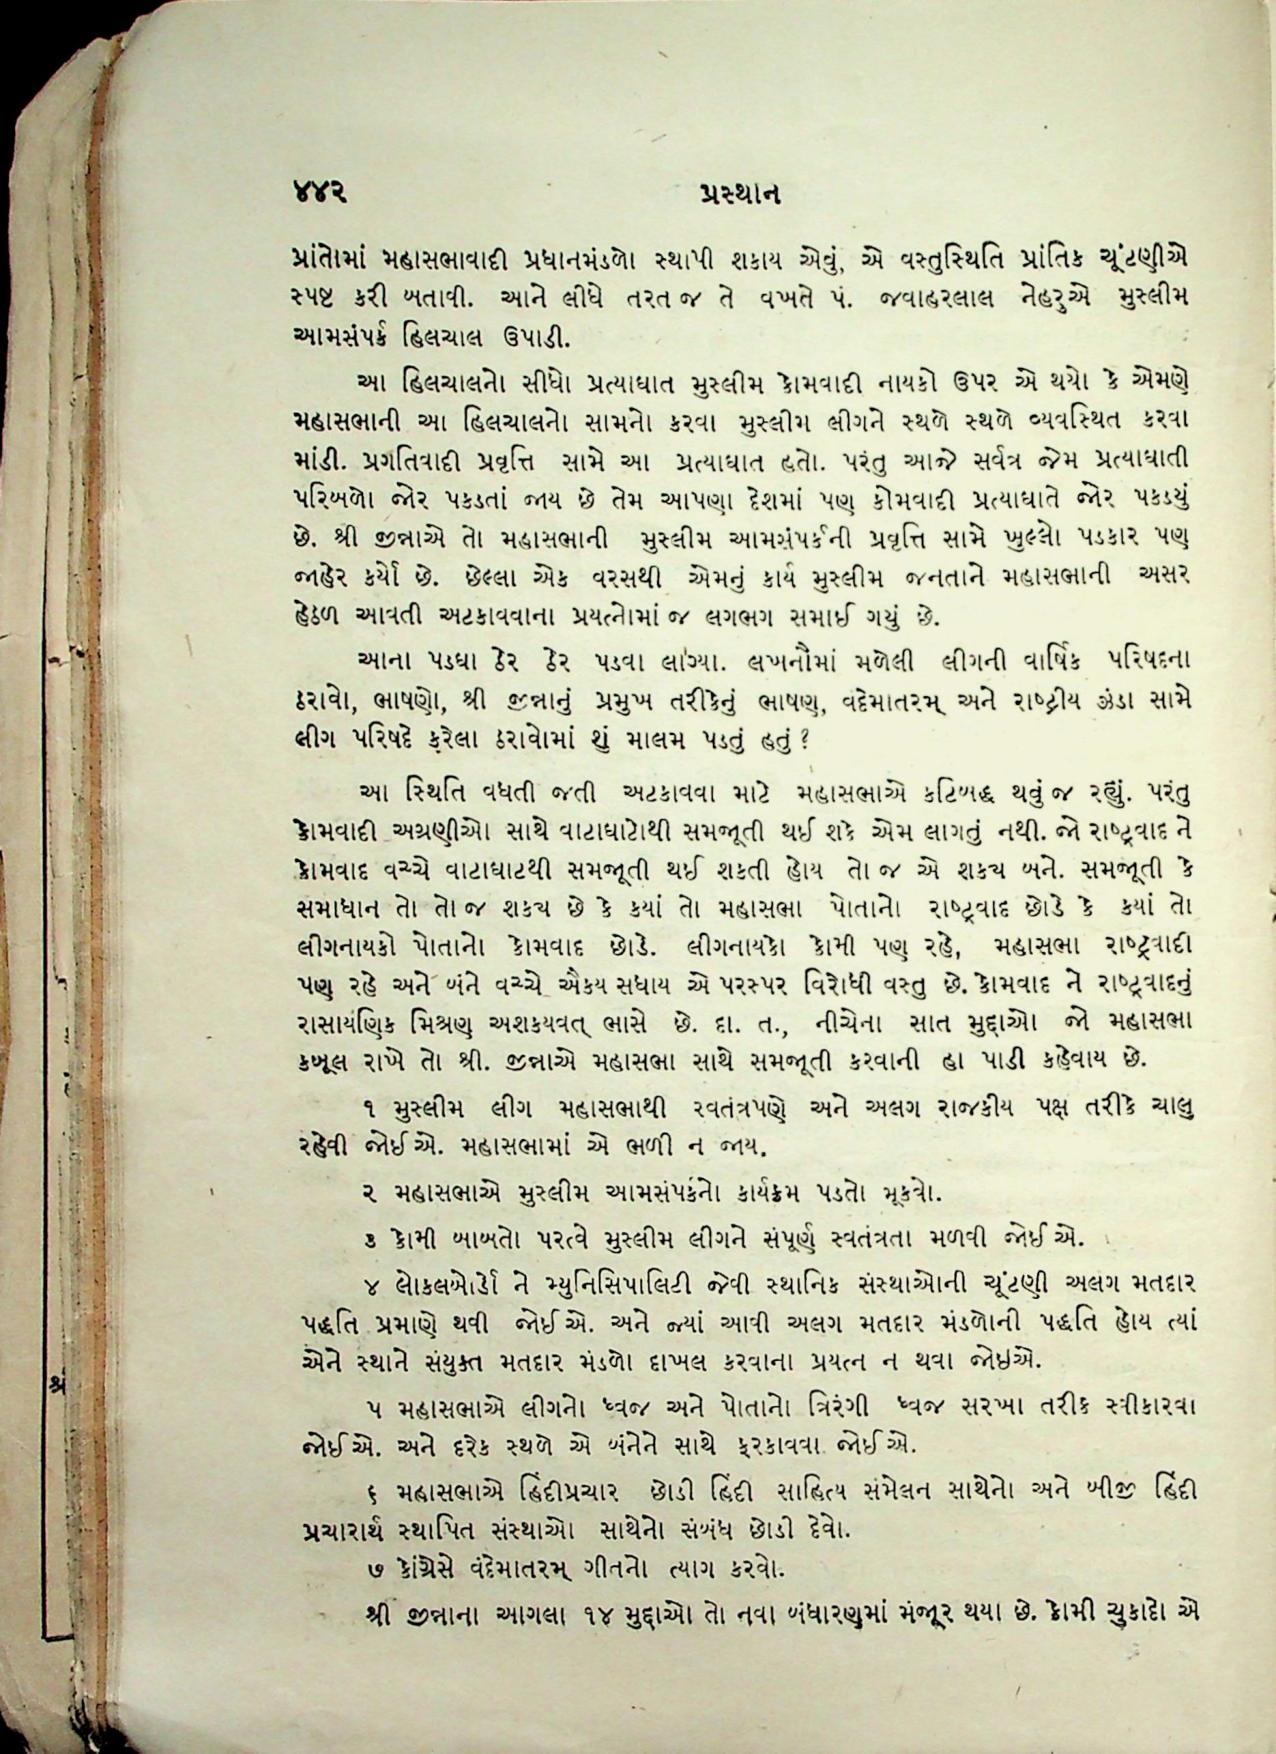 ૪૪૨ પ્રસ્થાન
પ્રાંતોમાં મહાસભાવાદી પ્રધાનમંડળો સ્થાપી શકાય એવું, એ વસ્તુસ્થિતિ પ્રાંતિક ચૂંટણીએ
સ્પષ્ટ કરી બતાવી. આને લીધે તરત જ તે વખતે પં. જવાહરલાલ નેહરુએ મુસ્લીમ
આમસંપર્ક હિલચાલ ઉપાડી.
આ હિલચાલનો સીધો પ્રત્યાઘાત મુસ્લીમ કોમવાદી નાયકો ઉપર એ થયો કે એમણે
મહાસભાની આ હિલચાલનો સામનો કરવા મુસ્લીમ લીગને સ્થળે સ્થળે વ્યવસ્થિત કરવા
માંડી. પ્રગતિવાદી પ્રવૃત્તિ સામે આ પ્રત્યાઘાત હતો. પરંતુ આજે સર્વત્ર જેમ પ્રત્યાઘાતી
પરિબળો જોર પકડતાં જાય છે તેમ આપણા દેશમાં પણ કોમવાદી પ્રત્યાઘાતે જોર પકડયું
છે. શ્રી જીન્નાએ તો મહાસભાની મુસ્લીમ આમસંપર્કની પ્રવૃત્તિ સામે ખુલ્લો પડકાર પણ
જાહેર કર્યો છે. છેલ્લા એક વરસથી એમનું કાર્ય મુસ્લીમ જનતાને મહાસભાની અસર
હેઠળ આવતી અટકાવવાના પ્રયત્નોમાં જ લગભગ સમાઈ ગયું છે.
આના પડઘા ઠેર ઠેર પડવા લાગ્યા. લખનૌમાં મળેલી લીગની વાર્ષિક પરિષદના
ઠરાવો, ભાષણો, શ્રી જીન્નાનું પ્રમુખ તરીકેનું ભાષણ, વદેમાતરમ્ અને રાષ્ટ્રીય ઝંડા સામે
લીગ પરિષદે કરેલા ઠરાવોમાં શું માલમ પડતું હતું?
આ સ્થિતિ વધતી જતી અટકાવવા માટે મહાસભાએ કટિબદ્ધ થવું જ રહ્યું. પરંતુ
કોમવાદી અગ્રણીઓ સાથે વાટાઘાટોથી સમજૂતી થઈ શકે એમ લાગતું નથી. જો રાષ્ટ્રવાદ ને
કોમવાદ વચ્ચે વાટાઘાટથી સમજૂતી થઈ શકતી હોય તો જ એ શકય બને. સમજૂતી કે
સમાધાન તો તો જ શકય છે કે કયાં તો મહાસભા પોતાનો રાષ્ટ્રવાદ છોડે કે કયાં તો
લીગનાયકો પોતાનો કોમવાદ છોડે. લીગનાયકો કોમી પણ રહે, મહાસભા રાષ્ટ્રવાદી
પણ રહે અને બંને વચ્ચે ઐકય સધાય એ પરસ્પર વિરોધી વસ્તુ છે. કોમવાદ ને રાષ્ટ્રવાદનું
રાસાયણિક મિશ્રણ અશકયવત્ ભાસે છે. દા. ત., નીચેના સાત મુદ્દાઓ જો મહાસભા
કબૂલ રાખે તો શ્રી. જીન્નાએ મહાસભા સાથે સમજૂતી કરવાની હા પાડી કહેવાય છે.
૧ મુસ્લીમ લીગ મહાસભાથી સ્વતંત્રપણે અને અલગ રાજકીય પક્ષ તરીકે ચાલુ
રહેવી જોઈએ. મહાસભામાં એ ભળી ન જાય.
૨ મહાસભાએ મુસ્લીમ આમસંપર્કનો કાર્યક્રમ પડતો મૂકવો.
૩ કોમી બાબતો પરત્વે મુસ્લીમ લીગને સંપૂર્ણ સ્વતંત્રતા મળવી જોઈએ.
૪ લોકલબોર્ડો ને મ્યુનિસિપાલિટી જેવી સ્થાનિક સંસ્થાઓની ચૂંટણી અલગ મતદાર
પદ્ધતિ પ્રમાણે થવી જોઈએ. અને જ્યાં આવી અલગ મતદાર મંડળોની પદ્ધતિ હોય ત્યાં
એને સ્થાને સંયુક્ત મતદાર મંડળો દાખલ કરવાના પ્રયત્ન ન થવા જોઇએ.
૫ મહાસભાએ લીગનો ધ્વજ અને પોતાનો ત્રિરંગી ધ્વજ સરખા તરીકે સ્વીકારવા
જોઈએ. અને દરેક સ્થળે એ બંનેને સાથે ફરકાવવા જોઈએ.
૬ મહાસભાએ હિંદીપ્રચાર છોડી હિંદી સાહિત્ય સંમેલન સાથેનો અને બીજી હિંદી
પ્રચારાર્થ સ્થાપિત સંસ્થાઓ સાથેનો સંબંધ છોડી દેવો.
૭ કોંગ્રેસે વંદેમાતરમ્ ગીતનો ત્યાગ કરવો.
શ્રી જીન્નાના આગલા ૧૪ મુદ્દાઓ તો નવા બંધારણમાં મંજૂર થયા છે. કોમી ચુકાદો એ